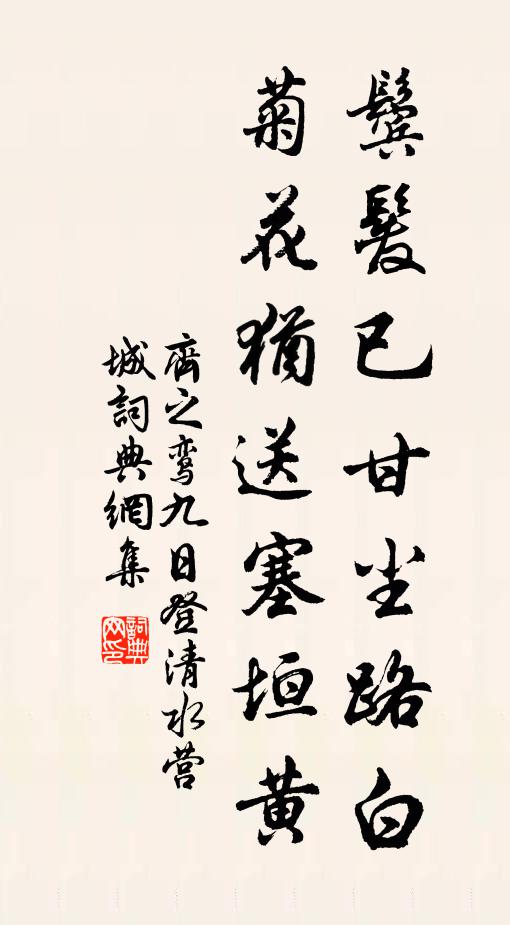 鬢髮已甘尘路白
菊花猶送塞垣黄
齊之鸾九日登清水营
城詞典網集
詞典
网印